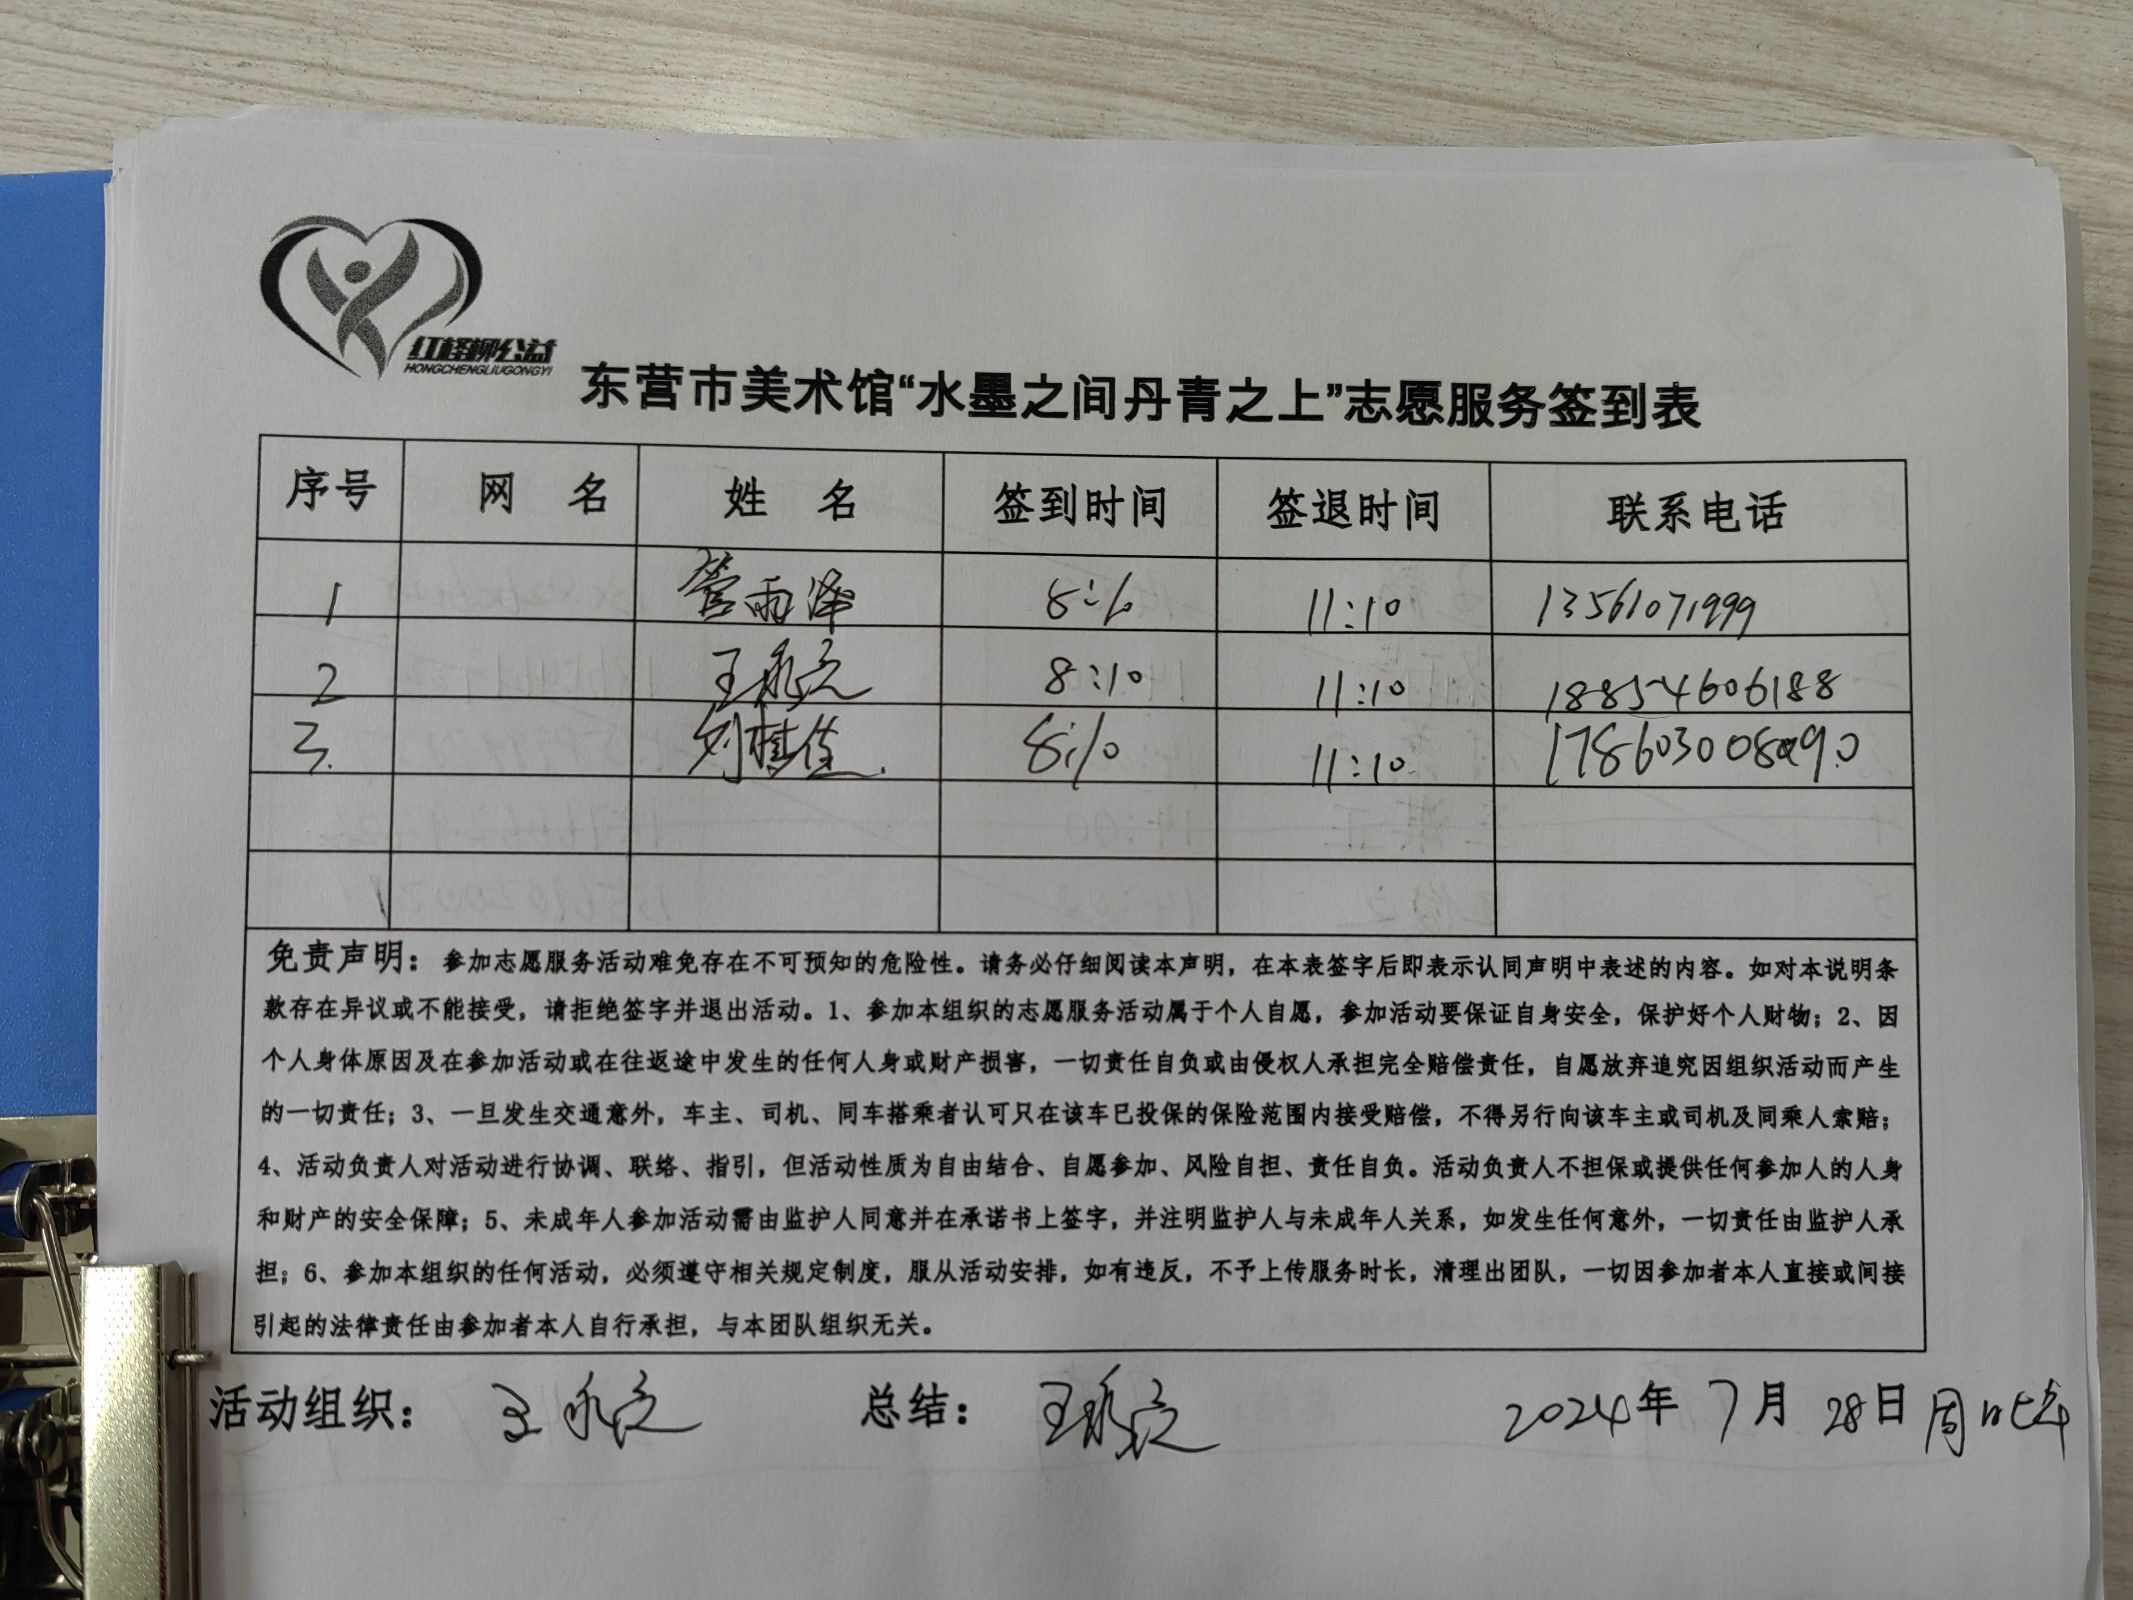 红柽柳公益
HONGCHENGLIUGONGYI
东营市美术馆“水墨之间丹青之上”志愿服务签到表
序号 网 名 姓 名 签到时间 签退时间 联系电话
1 管雨泽 8:10 11:10 13561071999
2 王永立 8:10 11:10 18854606188
3. 刘桂佳. 8:10 11:10 
免责声明：参加志愿服务活动难免存在不可预知的危险性。请务必仔细阅读本声明，在本表签字后即表示认同声明中表述的内容。如对本说明条
款存在异议或不能接受，请拒绝签字并退出活动。1、参加本组织的志愿服务活动属于个人自愿，参加活动要保证自身安全，保护好个人财物；2、因
个人身体原因及在参加活动或在往返途中发生的任何人身或财产损害，一切责任自负或由侵权人承担完全赔偿责任，自愿放弃追究因组织活动而产生
的一切责任；3、一旦发生交通意外，车主、司机、同车搭乘者认可只在该车已投保的保险范围内接受赔偿，不得另行向该车主或司机及同乘人索赔；
4、活动负责人对活动进行协调、联络、指引，但活动性质为自由结合、自愿参加、风险自担、责任自负。活动负责人不担保或提供任何参加人的人身
和财产的安全保障；5、未成年人参加活动需由监护人同意并在承诺书上签字，并注明监护人与未成年人关系，如发生任何意外，一切责任由监护人承
担；6、参加本组织的任何活动，必须遵守相关规定制度，服从活动安排，如有违反，不予上传服务时长，清理出团队，一切因参加者本人直接或间接
引起的法律责任由参加者本人自行承担，与本团队组织无关。
活动组织： 王永立 总结： 王永立 2024年 7月 28日 周日上午